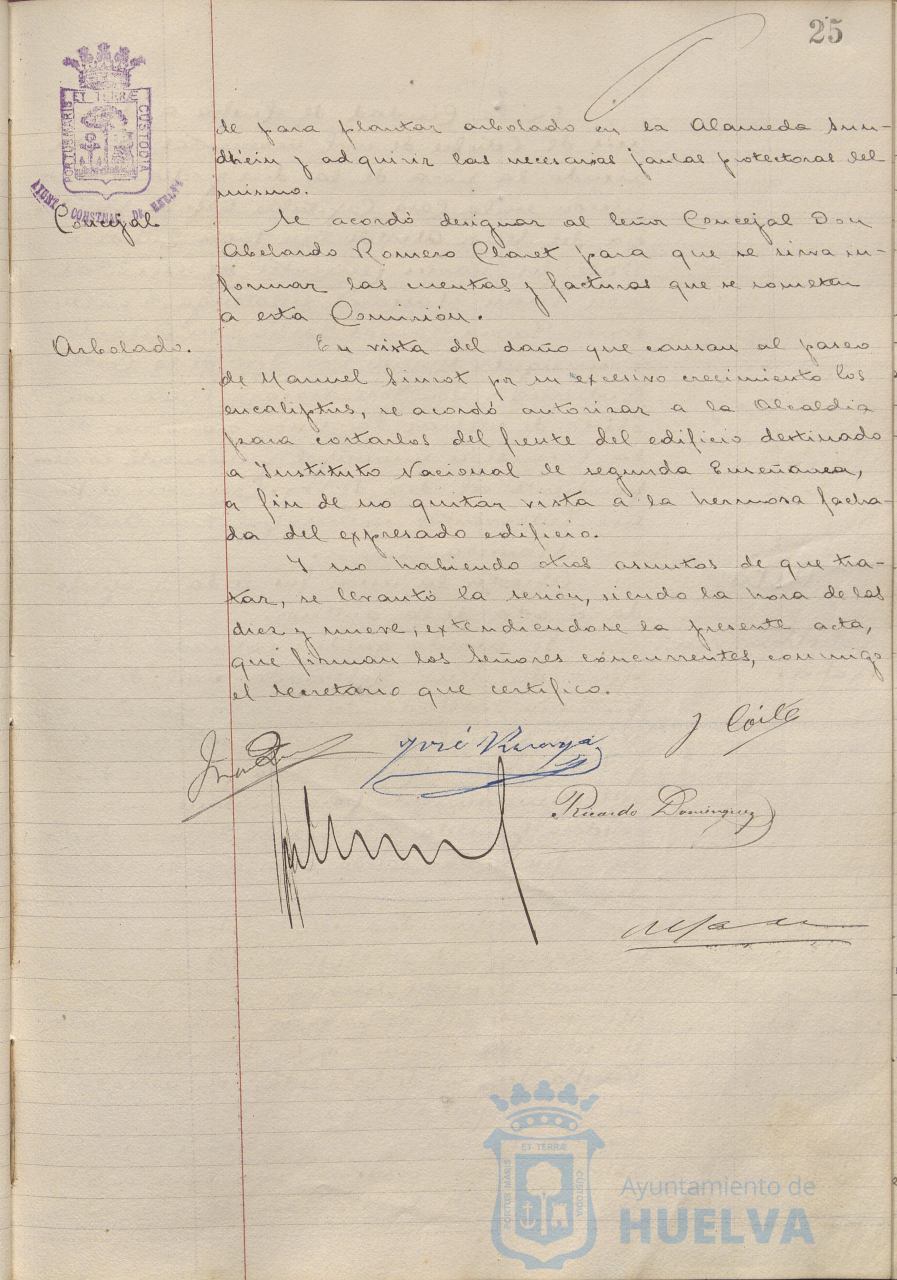 25
PORTUS MARIS ET TERRÆ CUSTODIA
AYUNT. CONSTNAL. DE HUELVA
de para plantar arbolado en la Alameda Sun-
dhein y adquirir las necesarias jaulas protectoras del
mismo.
Concejal
Se acordó designar al Señor Concejal Don
Abelardo Romero Claret para que se sirva in-
formar las cuentas y facturas que se sometan
a esta Comisión.
Arbolado.
En vista del daño que causan al paseo
de Manuel Siurot por su excesivo crecimiento los
eucaliptus, se acordó autorizar a la Alcaldia
para cortarlos del frente del edificio destinado
a Instituto Nacional de segunda Enseñanza,
a fin de no quitar vista a la hermosa facha-
da del expresado edificio.
Y no habiendo otros asuntos de que tra-
tar, se levantó la sesión, siendo la hora de las
diez y nueve, extendiendose la presente acta,
que firman los Señores concurrentes, conmigo
el Secretario que certifico.
José
Ricardo Dominguez
PORTUS MARIS ET TERRÆ CUSTODIA
Ayuntamiento de
HUELVA